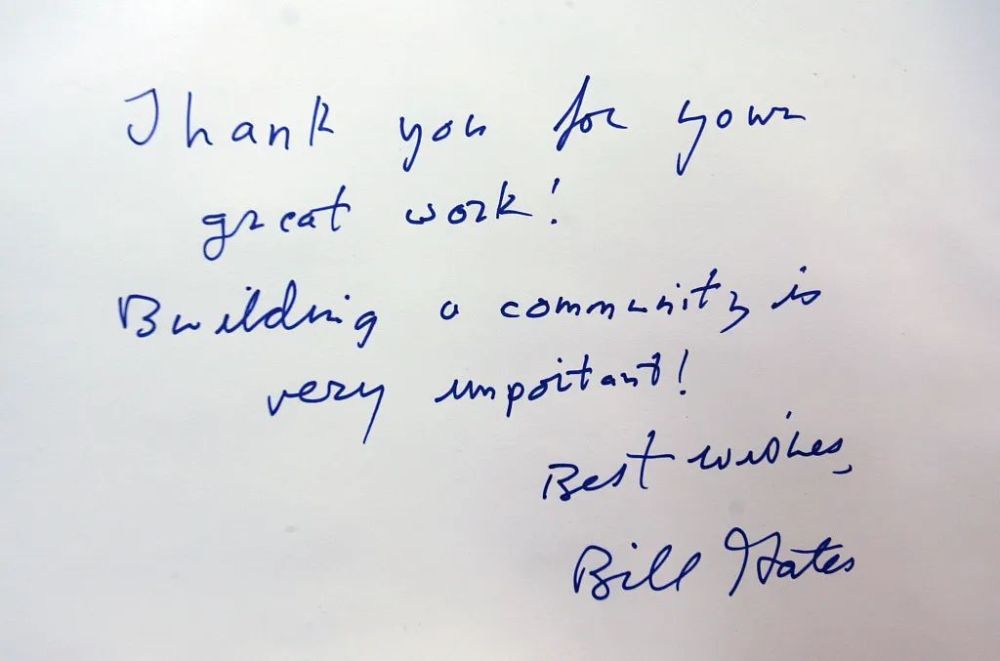 Thank you for your
great work!
Building a community is
very important!
Best wishes,
Bill Gates